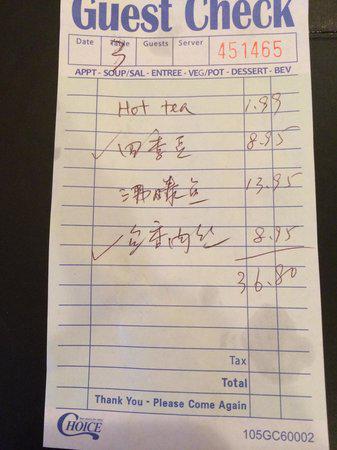 Guest Check
Date Table Guests Server
3 451465
APPT - SOUP/SAL - ENTREE - VEG/POT - DESSERT - BEV
Hot tea 1.99
✓ 四季豆 8.95
沸腾鱼 13.95
✓ 鱼香肉丝 8.95
36.80
Tax
Total
Thank You - Please Come Again
CHOICE 105GC60002